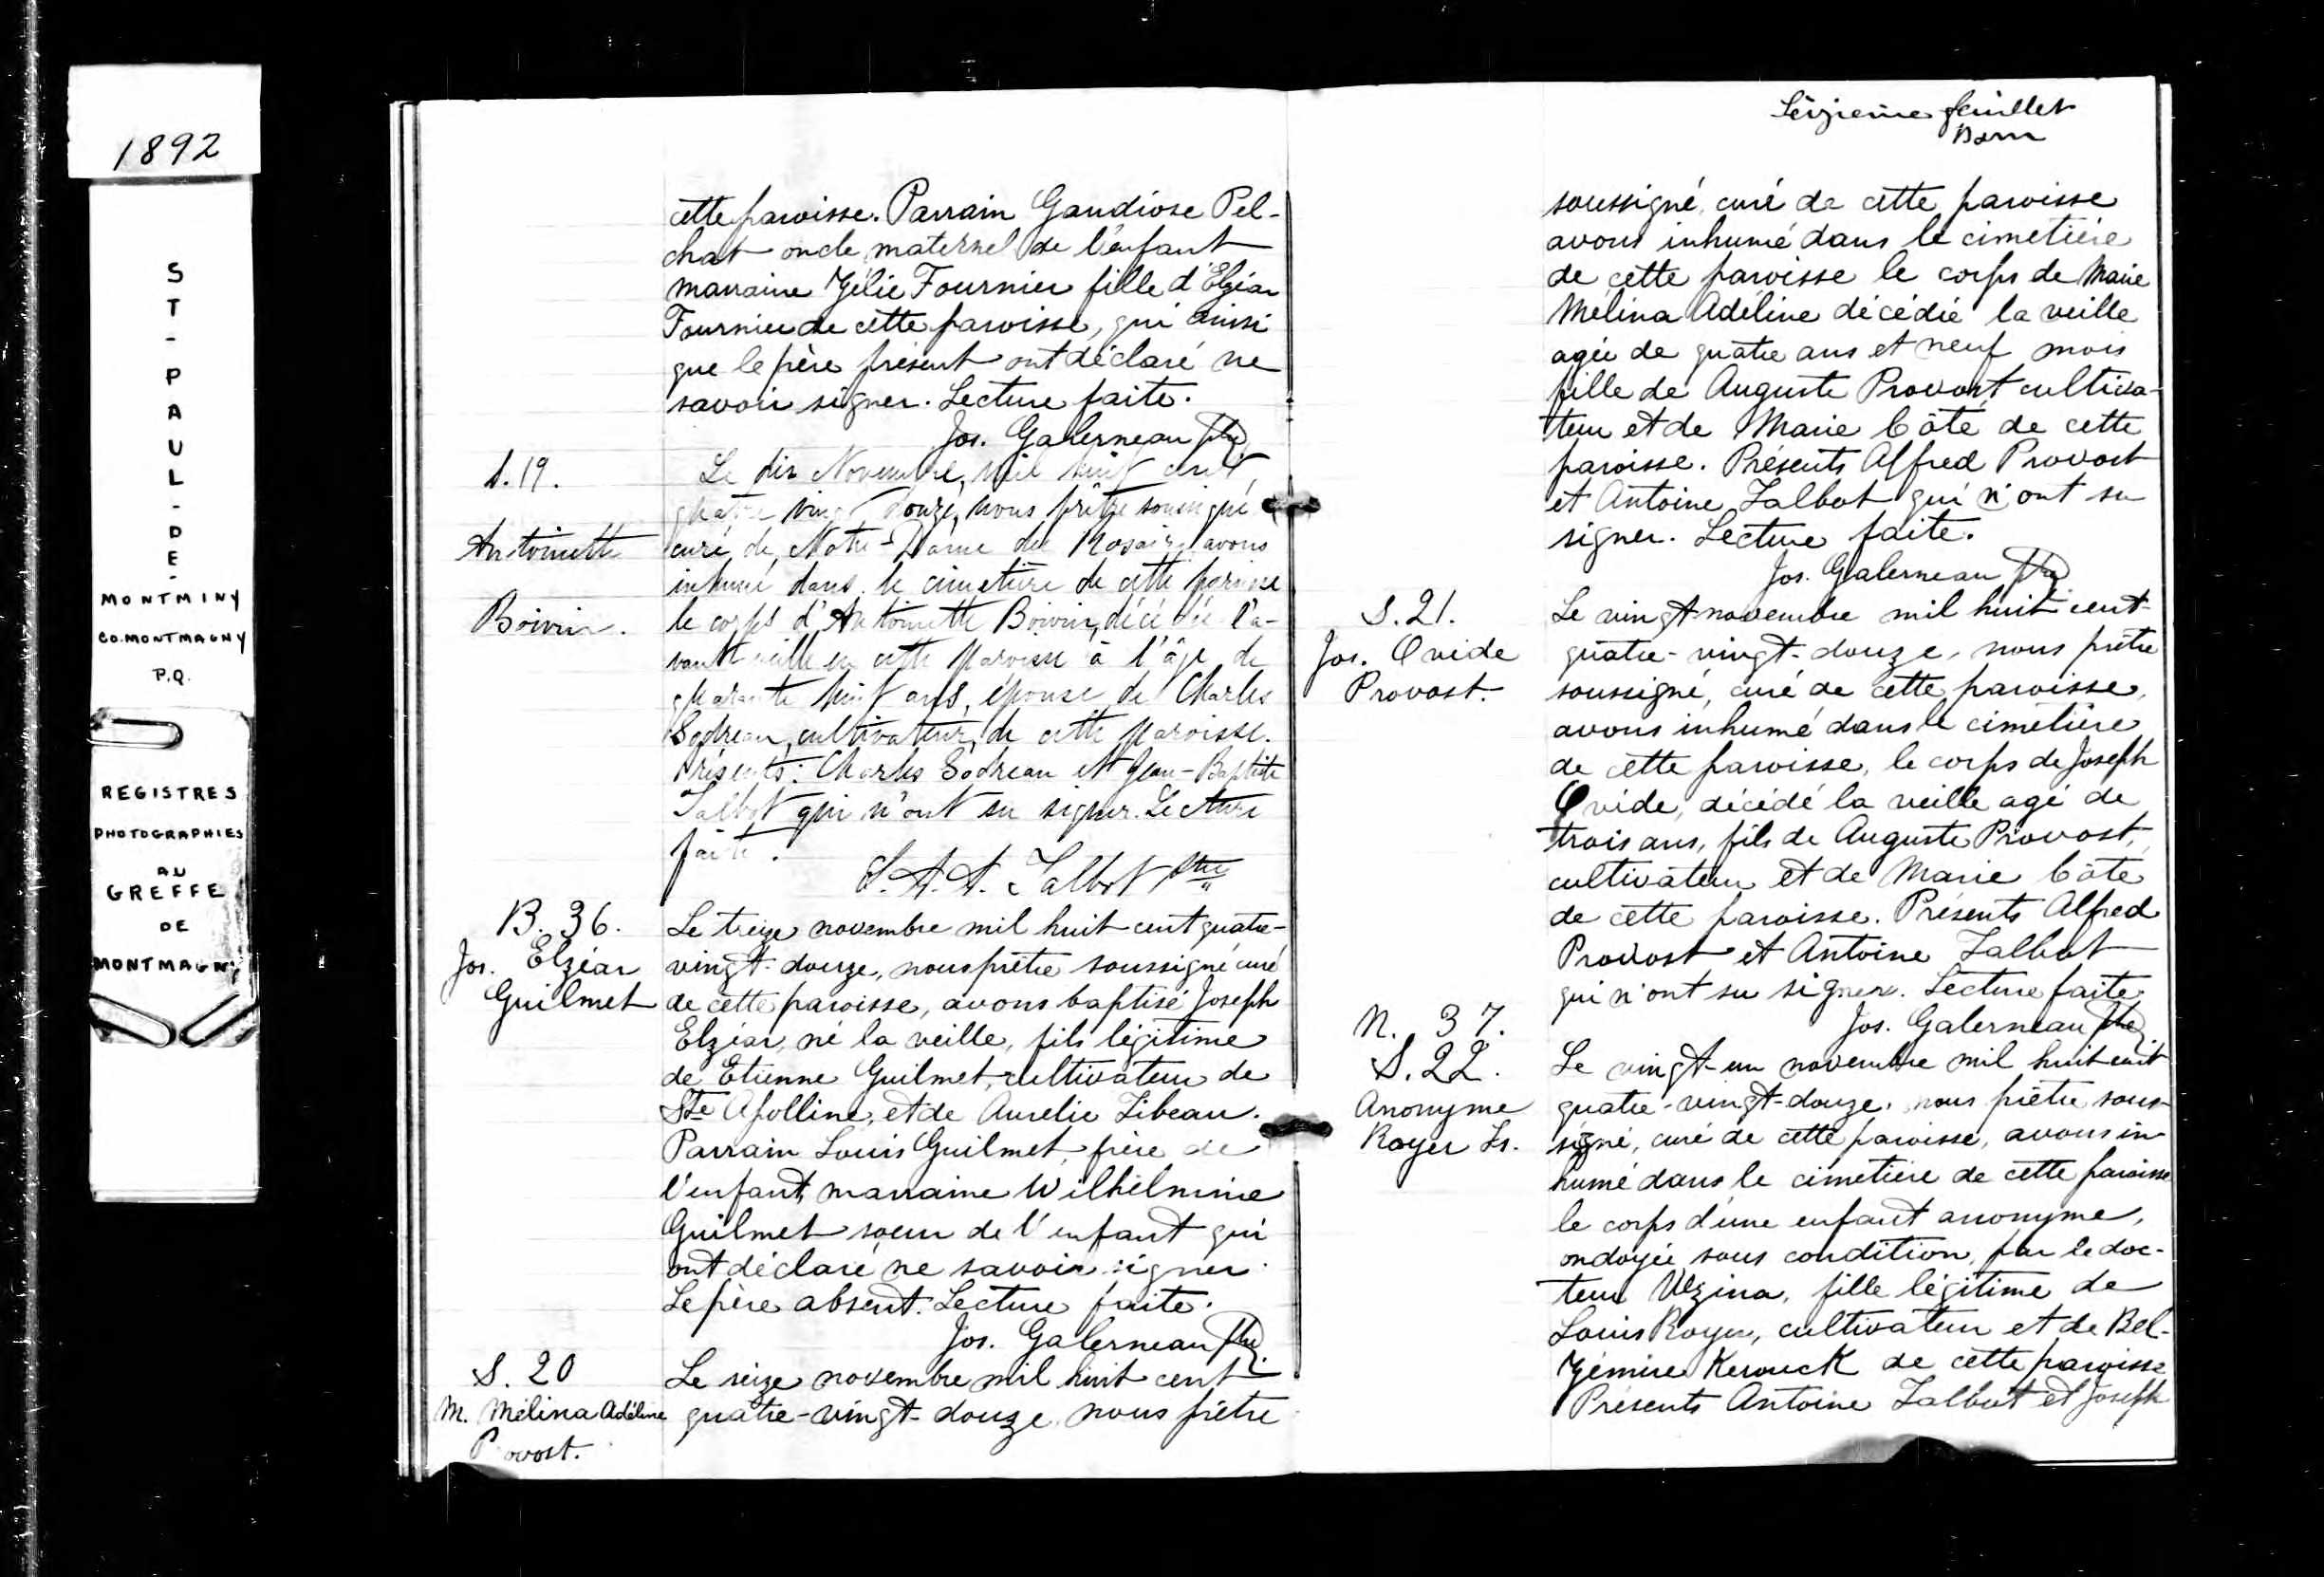 1892
ST-PAUL-DE-
MONTMINY
CO. MONTMAGNY
P.Q.
REGISTRES
PHOTOGRAPHIES
AU
GREFFE
DE
MONTMAGNY
cette paroisse. Parrain Gaudiose Pel-
chat oncle maternel de l'enfant
marraine Zélie Fournier fille d'Elzéar
Fournier de cette paroisse, qui ainsi
que le père présent ont déclaré ne
savoir signer. Lecture faite.
Jos. Galerneau Ptre
S. 19.
Antoinette
Boivin.
Le dix Novembre, mil huit cent
quatre vingt douze, nous prêtre soussigné
curé de Notre-Dame du Rosaire avons
inhumé dans le cimetière de cette paroisse
le corps d'Antoinette Boivin, décédée l'a-
vant veille en cette paroisse à l'âge de
quarante huit ans, épouse de Charles
cultivateur, de cette paroisse.
Présents: Charles et Jean-Baptiste
Talbot qui n'ont su signer. Lecture
faite.
A. A. Talbot Ptre
B. 36.
Jos. Elzéar
Guilmet
Le treize novembre mil huit cent quatre-
vingt-douze, nous prêtre soussigné curé
de cette paroisse, avons baptisé Joseph
Elzéar, né la veille, fils légitime
de Etienne Guilmet, cultivateur de
Ste Apolline, et de Aurelie
Parrain Louis Guilmet, frère de
l'enfant, marraine Wilhelmine
Guilmet soeur de l'enfant qui
ont déclaré ne savoir signer.
Le père absent. Lecture faite.
Jos. Galerneau Ptre
S. 20
M. Mélina Adéline
Provost.
Le seize novembre mil huit cent
quatre-vingt-douze nous prêtre
Seizième feuillet
soussigné, curé de cette paroisse
avons inhumé dans le cimetière
de cette paroisse le corps de Marie
Mélina Adéline décédée la veille
agée de quatre ans et neuf mois
fille de Auguste Provost cultiva-
teur et de Marie Côté de cette
paroisse. Présents Alfred Provost
et Antoine Talbot qui n'ont su
signer. Lecture faite.
Jos. Galerneau Ptre
S. 21.
Jos. Ovide
Provost.
Le vingt novembre mil huit cent
quatre-vingt-douze, nous prêtre
soussigné, curé de cette paroisse,
avons inhumé dans le cimetière
de cette paroisse, le corps de Joseph
Ovide, décédé la veille agé de
trois ans, fils de Auguste Provost,
cultivateur et de Marie Côté
de cette paroisse. Présents Alfred
Provost et Antoine Talbot
qui n'ont su signer. Lecture faite.
Jos. Galerneau Ptre
N. 37.
S. 22.
Anonyme
Royer Ls.
Le vingt-un novembre mil huit cent
quatre-vingt-douze, nous prêtre sous-
signé, curé de cette paroisse, avons in-
humé dans le cimetière de cette paroisse
le corps d'une enfant anonyme,
ondoyée sous condition, par le doc-
teur Vézina, fille légitime de
Louis Royer, cultivateur et de Bel-
zémire Kerouck de cette paroisse
Présents Antoine Talbot et Joseph